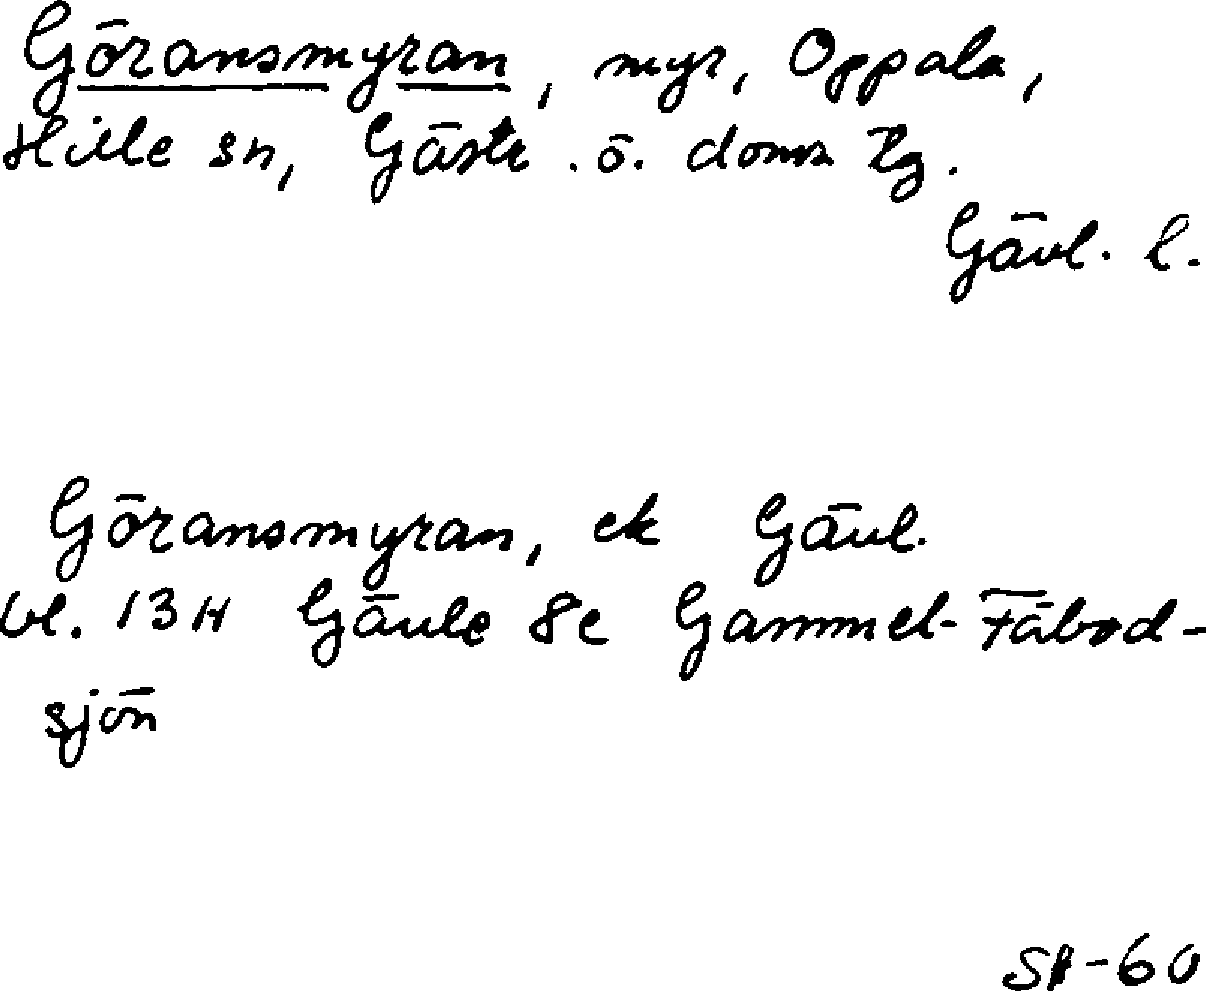 Göransmyran, myr, Oppala,
Hille sn, Gästr. ö. doms tg.
Gävl. l.
Göransmyran, ek Gävl.
bl. 13H Gävle 8c Gammel-Fäbod-
sjön